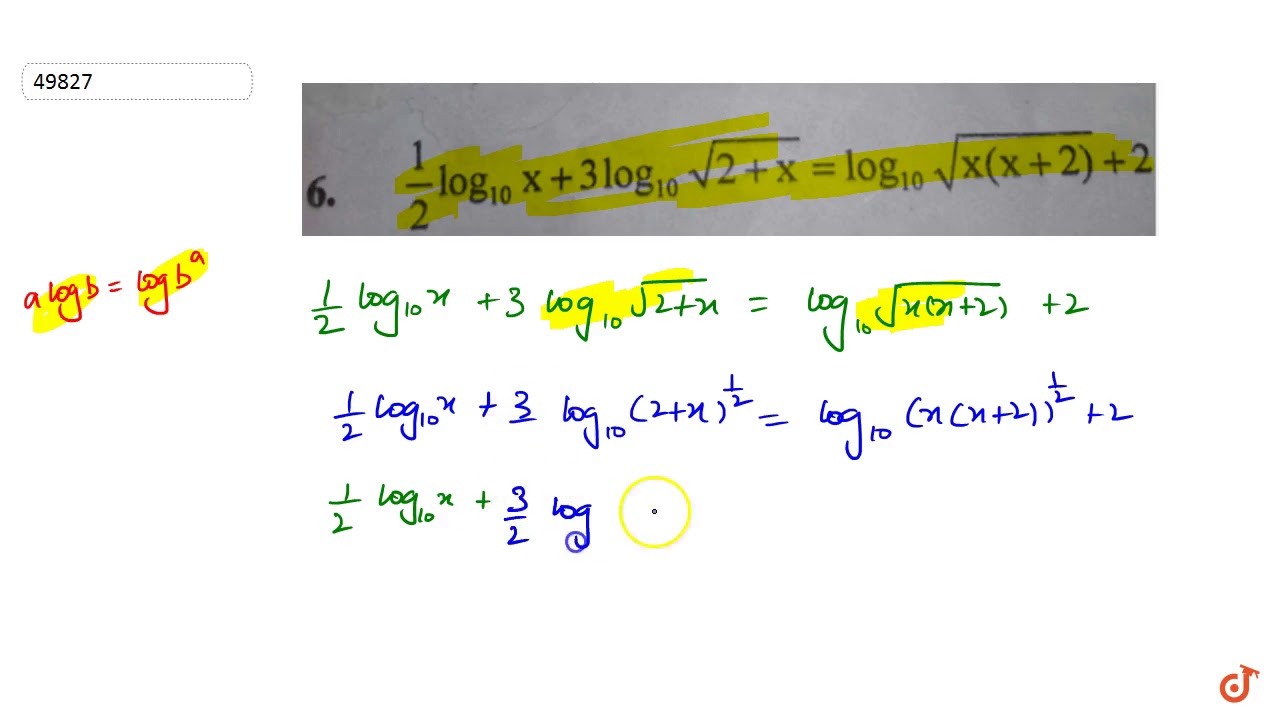 49827
6. 1/2 log₁₀ x + 3 log₁₀ √(2 + x) = log₁₀ √(x(x + 2)) + 2
a log b = log bᵃ
1/2 log₁₀ x + 3 log₁₀ √(2+x) = log₁₀ √(x(x+2)) + 2
1/2 log₁₀ x + 3 log₁₀ (2+x)^(1/2) = log₁₀ (x(x+2))^(1/2) + 2
1/2 log₁₀ x + 3/2 log₁